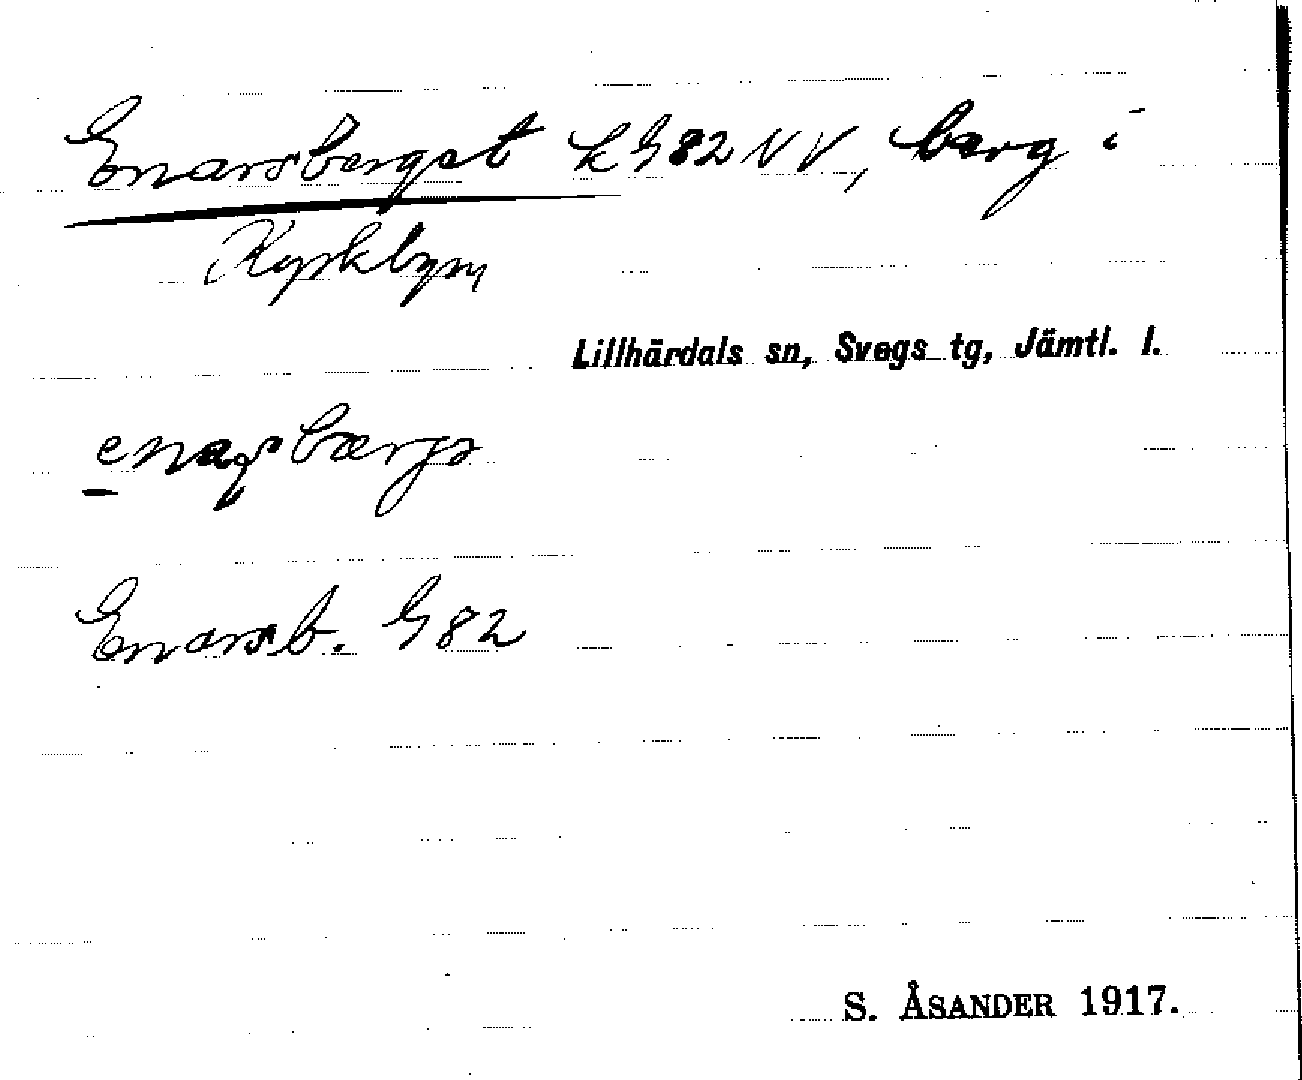 Enarsberget k G82 NV, berg i
Kyrkbyn
Lillhärdals sn, Svegs tg, Jämtl. l.
Enarsb. G 82
S. ÅSANDER 1917.